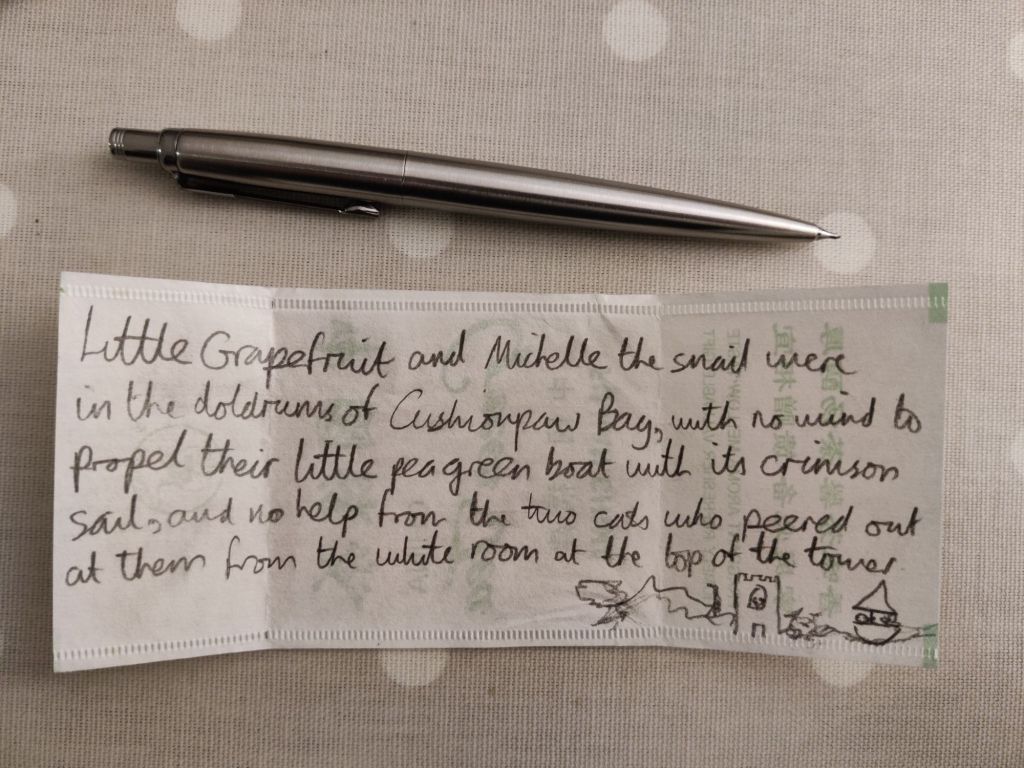 Little Grapefruit and Michelle the snail were
in the doldrums of Cushionpaw Bay, with no wind to
propel their little pea green boat with its crimson
sail, and no help from the two cats who peered out
at them from the white room at the top of the tower.